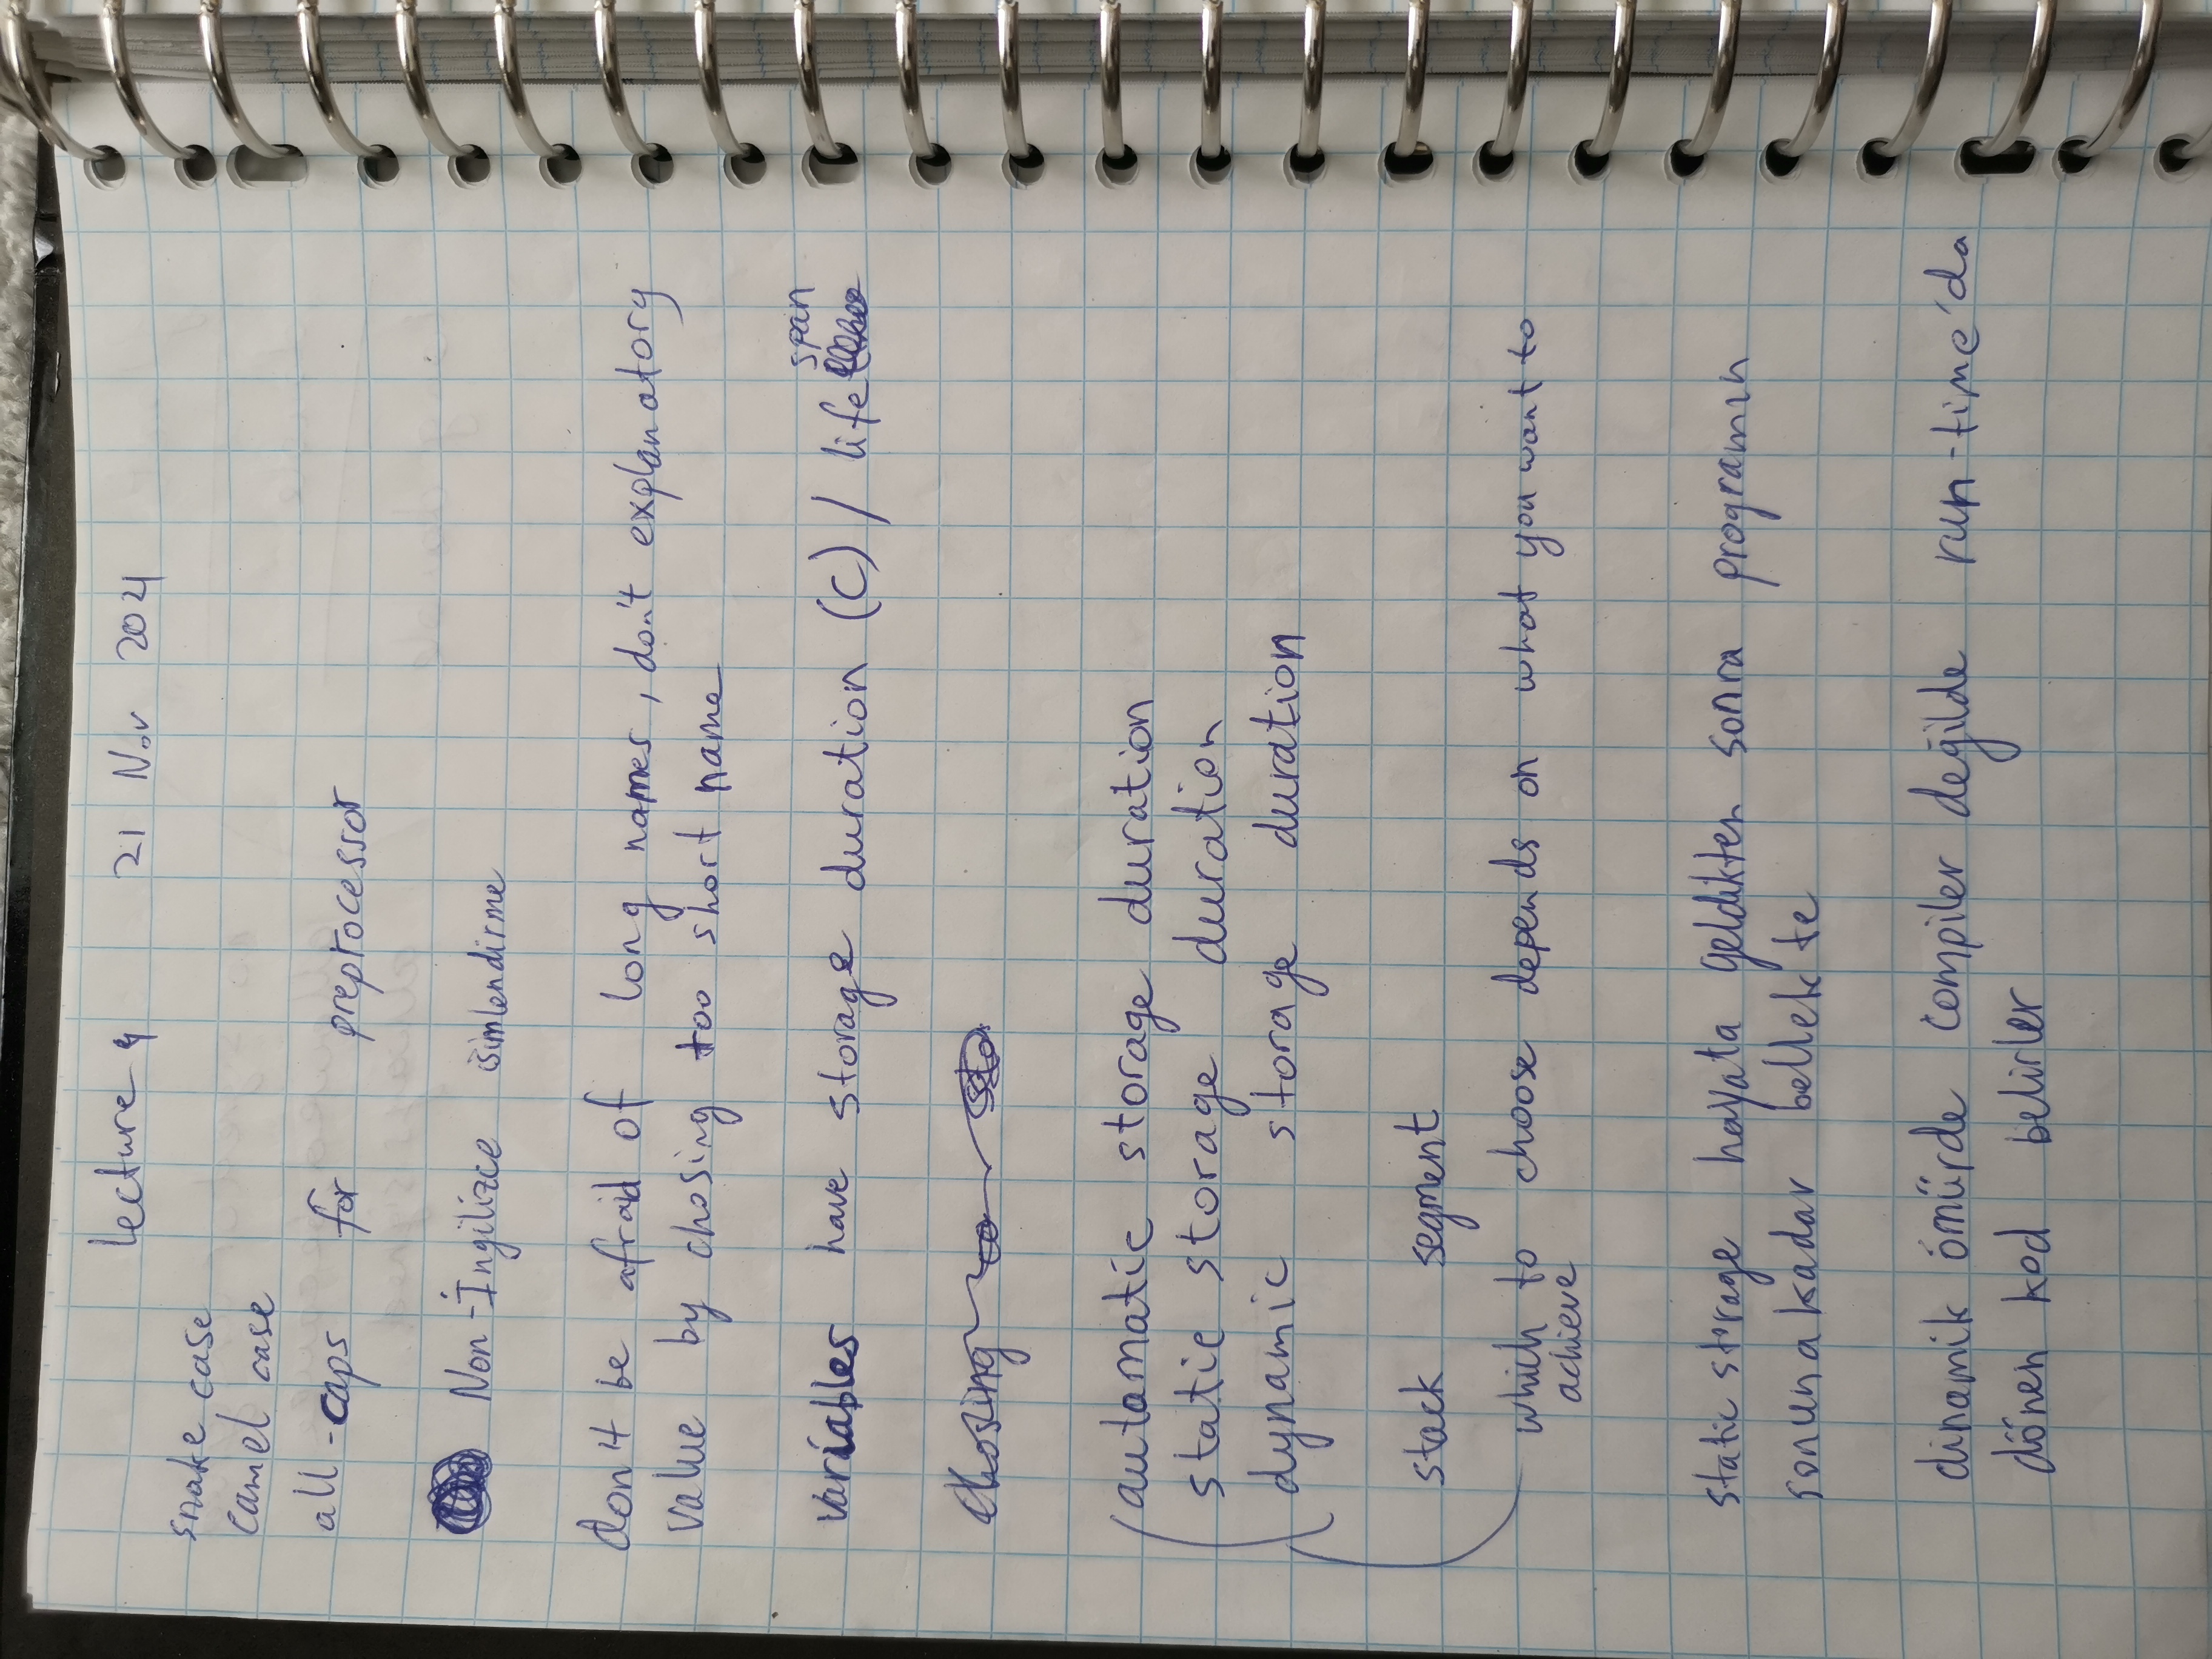 lecture 4 21 Nov 2021
snake case
camel case
all-caps for preprocessor
Non-İngilizce isimlendirme
don't be afraid of long names, don't explanatory
value by chosing too short name
span
variables have storage duration (C) / life
chosing to sto
automatic storage duration
static storage duration
dynamic storage duration
stack segment
which to choose depends on what you want to
achieve
static storage hayata geldikten sonra programın
sonuna kadar bellekte
dinamik ömürde compiler değilde run-time'da
dönen kod belirler